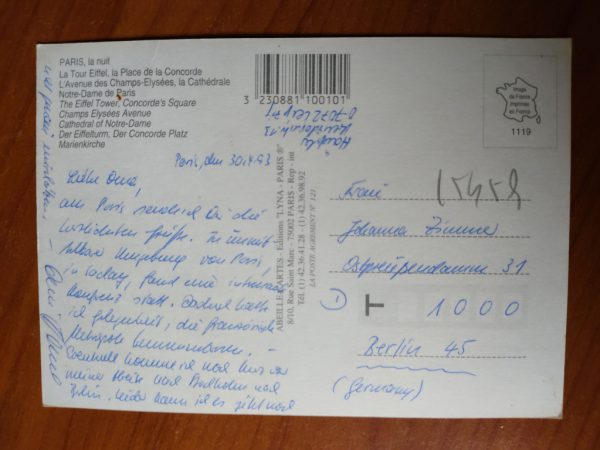 PARIS, la nuit
La Tour Eiffel, la Place de la Concorde
L'Avenue des Champs-Elysées, la Cathédrale
Notre-Dame de Paris
The Eiffel Tower, Concorde's Square
Champs Elysées Avenue
Cathedral of Notre-Dame
Der Eiffelturm, Der Concorde Platz
Marienkirche
3 230881 100101
Image
de France
Imprimée
en France
1119
D-7072 Leipzig
Paris, den 30.4.93
Liebe Oma,
aus Paris sende ich Dir die
herzlichsten Grüße. In unmit-
telbarer Umgebung von Paris,
fand eine
statt. Dadurch hatte
ich Gelegenheit, die französische
Metropole kennenzulernen. -
Eventuell komme ich noch kurz vor
meiner Reise nach Bornholm nach
Berlin. Leider kann ich es nicht
ABEILLE-CARTES - Editions "LYNA - PARIS ®"
8/10, Rue Saint Marc - 75002 PARIS - Rep - int
Tél. : (1) 42.36.41.28 - (1) 42.36.98.92
LA POSTE AGREMENT N° 121
Frau
Johanna Zimmer
Ostpreußendamm 31
T 1000
Berlin 45
(Germany)